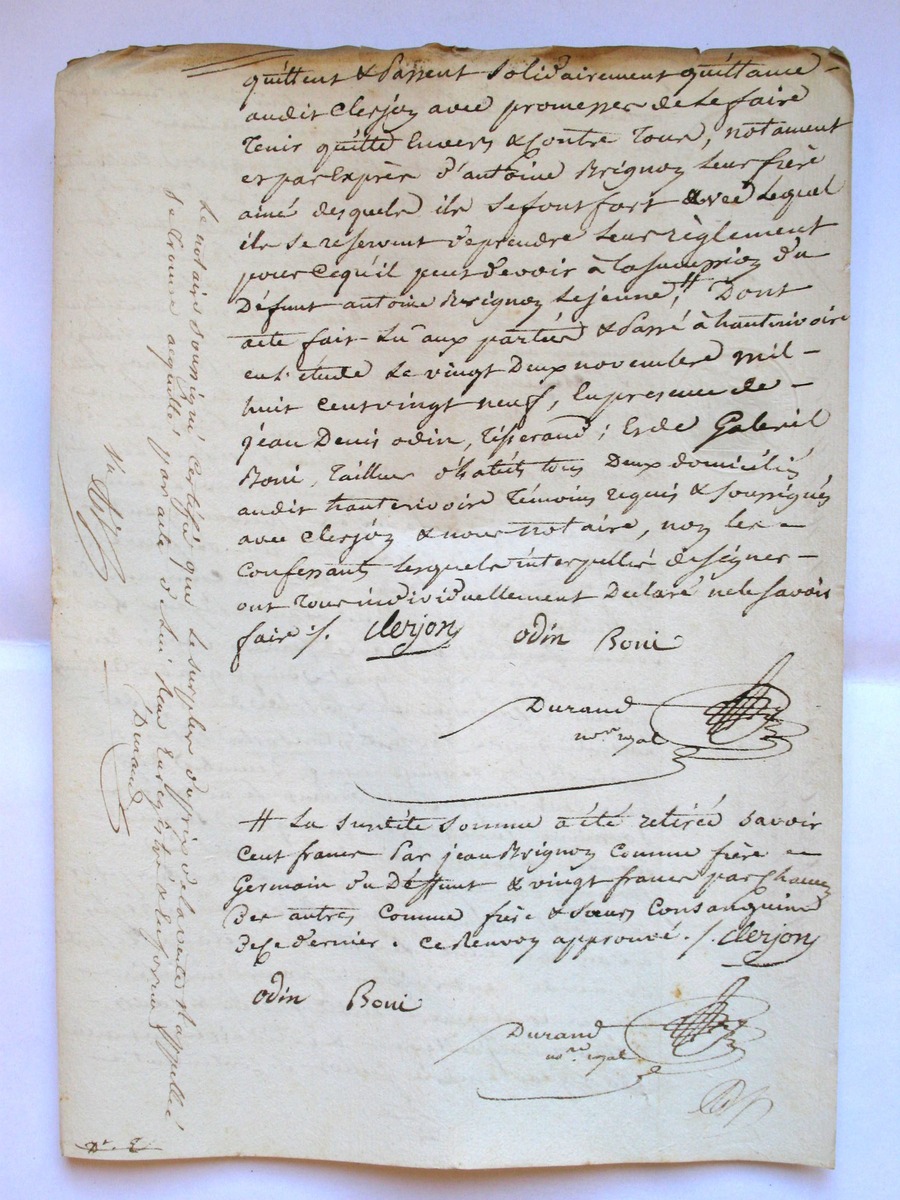 quittent & Passent solidairement quittance
audit Clerjon avec promesses de le faire
Tenir quitte Envers & Contre Tous, notament
et par Exprès d'antoine Brignon leur frère
ainé desquels ils se font fort & avec Lequel
ils se reservent de prendre leur règlement
pour Ce qu'il peut devoir à la succession du
Défunt antoine Brignon le jeune, # Dont
acte fait Lû aux parties & Passé à hauterivoire
en l'étude Le vingt Deux novembre mil
huit Cent vingt neuf, En presence de
jean Denis odin, Tisserand; Et de Gabriel
Boni, Tailleur d'habits tous Deux domiciliés
audit hauterivoire Témoins requis & soussignés
avec Clerjon & nous notaire, non les
Confessants Lesquels interpellés de signer
ont Tous individuellement Declaré ne le savoir
faire ./. Clerjon odin Boni
Durand
nore royal
# La susdite somme a été retirée savoir
Cent francs Par jean Brignon Comme frère
Germain du Deffunt & vingt francs par Chacun
Des autres Comme frère & sœurs Consanguins
de Ce dernier. Ce Renvoy approuvé ./. Clerjon
odin Boni
Durand
nore royal
Le notaire soussigné Certifie que le surplus du prix de la vente Rappellée
se trouve acquitté par acte de lui
Durand
Vu